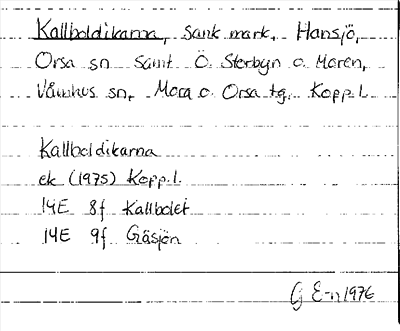 Kallboldikarna, sank mark, Hansjö,
Orsa sn samt Ö. Storbyn o. Moren,
Våmhus sn, Mora o. Orsa tg. Kopp. l.
Kallboldikarna
ek (1975) Kopp. l.
14E 8f Kallbolet
14E 9f Gäsjön
G E-n 1976